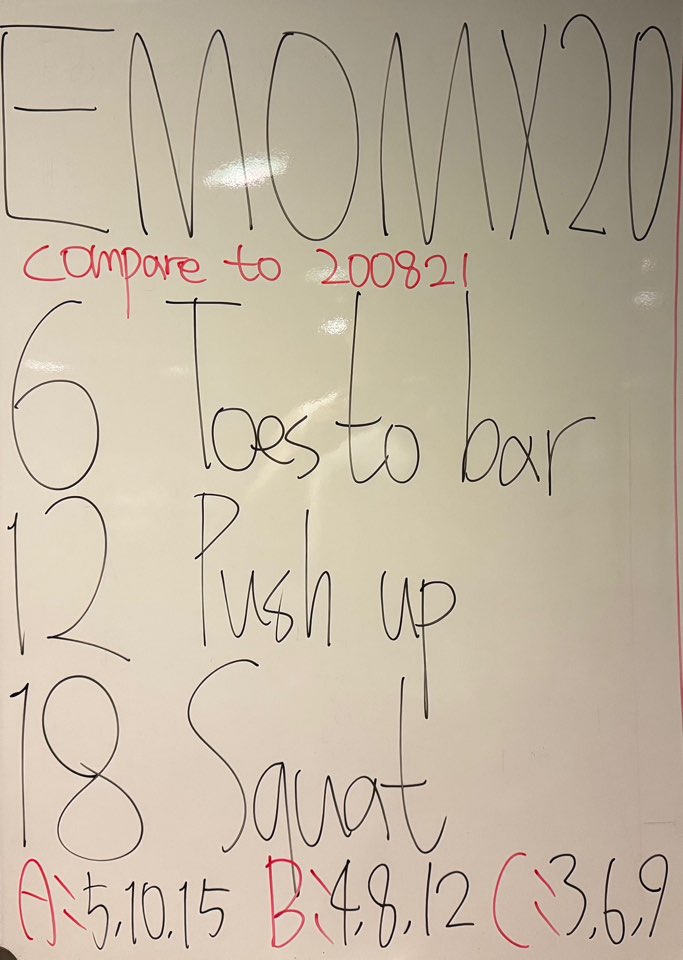 EMOMX20
compare to 200821
6 Toes to bar
12 Push up
18 Squat
A: 5,10,15 B: 4,8,12 C: 3,6,9